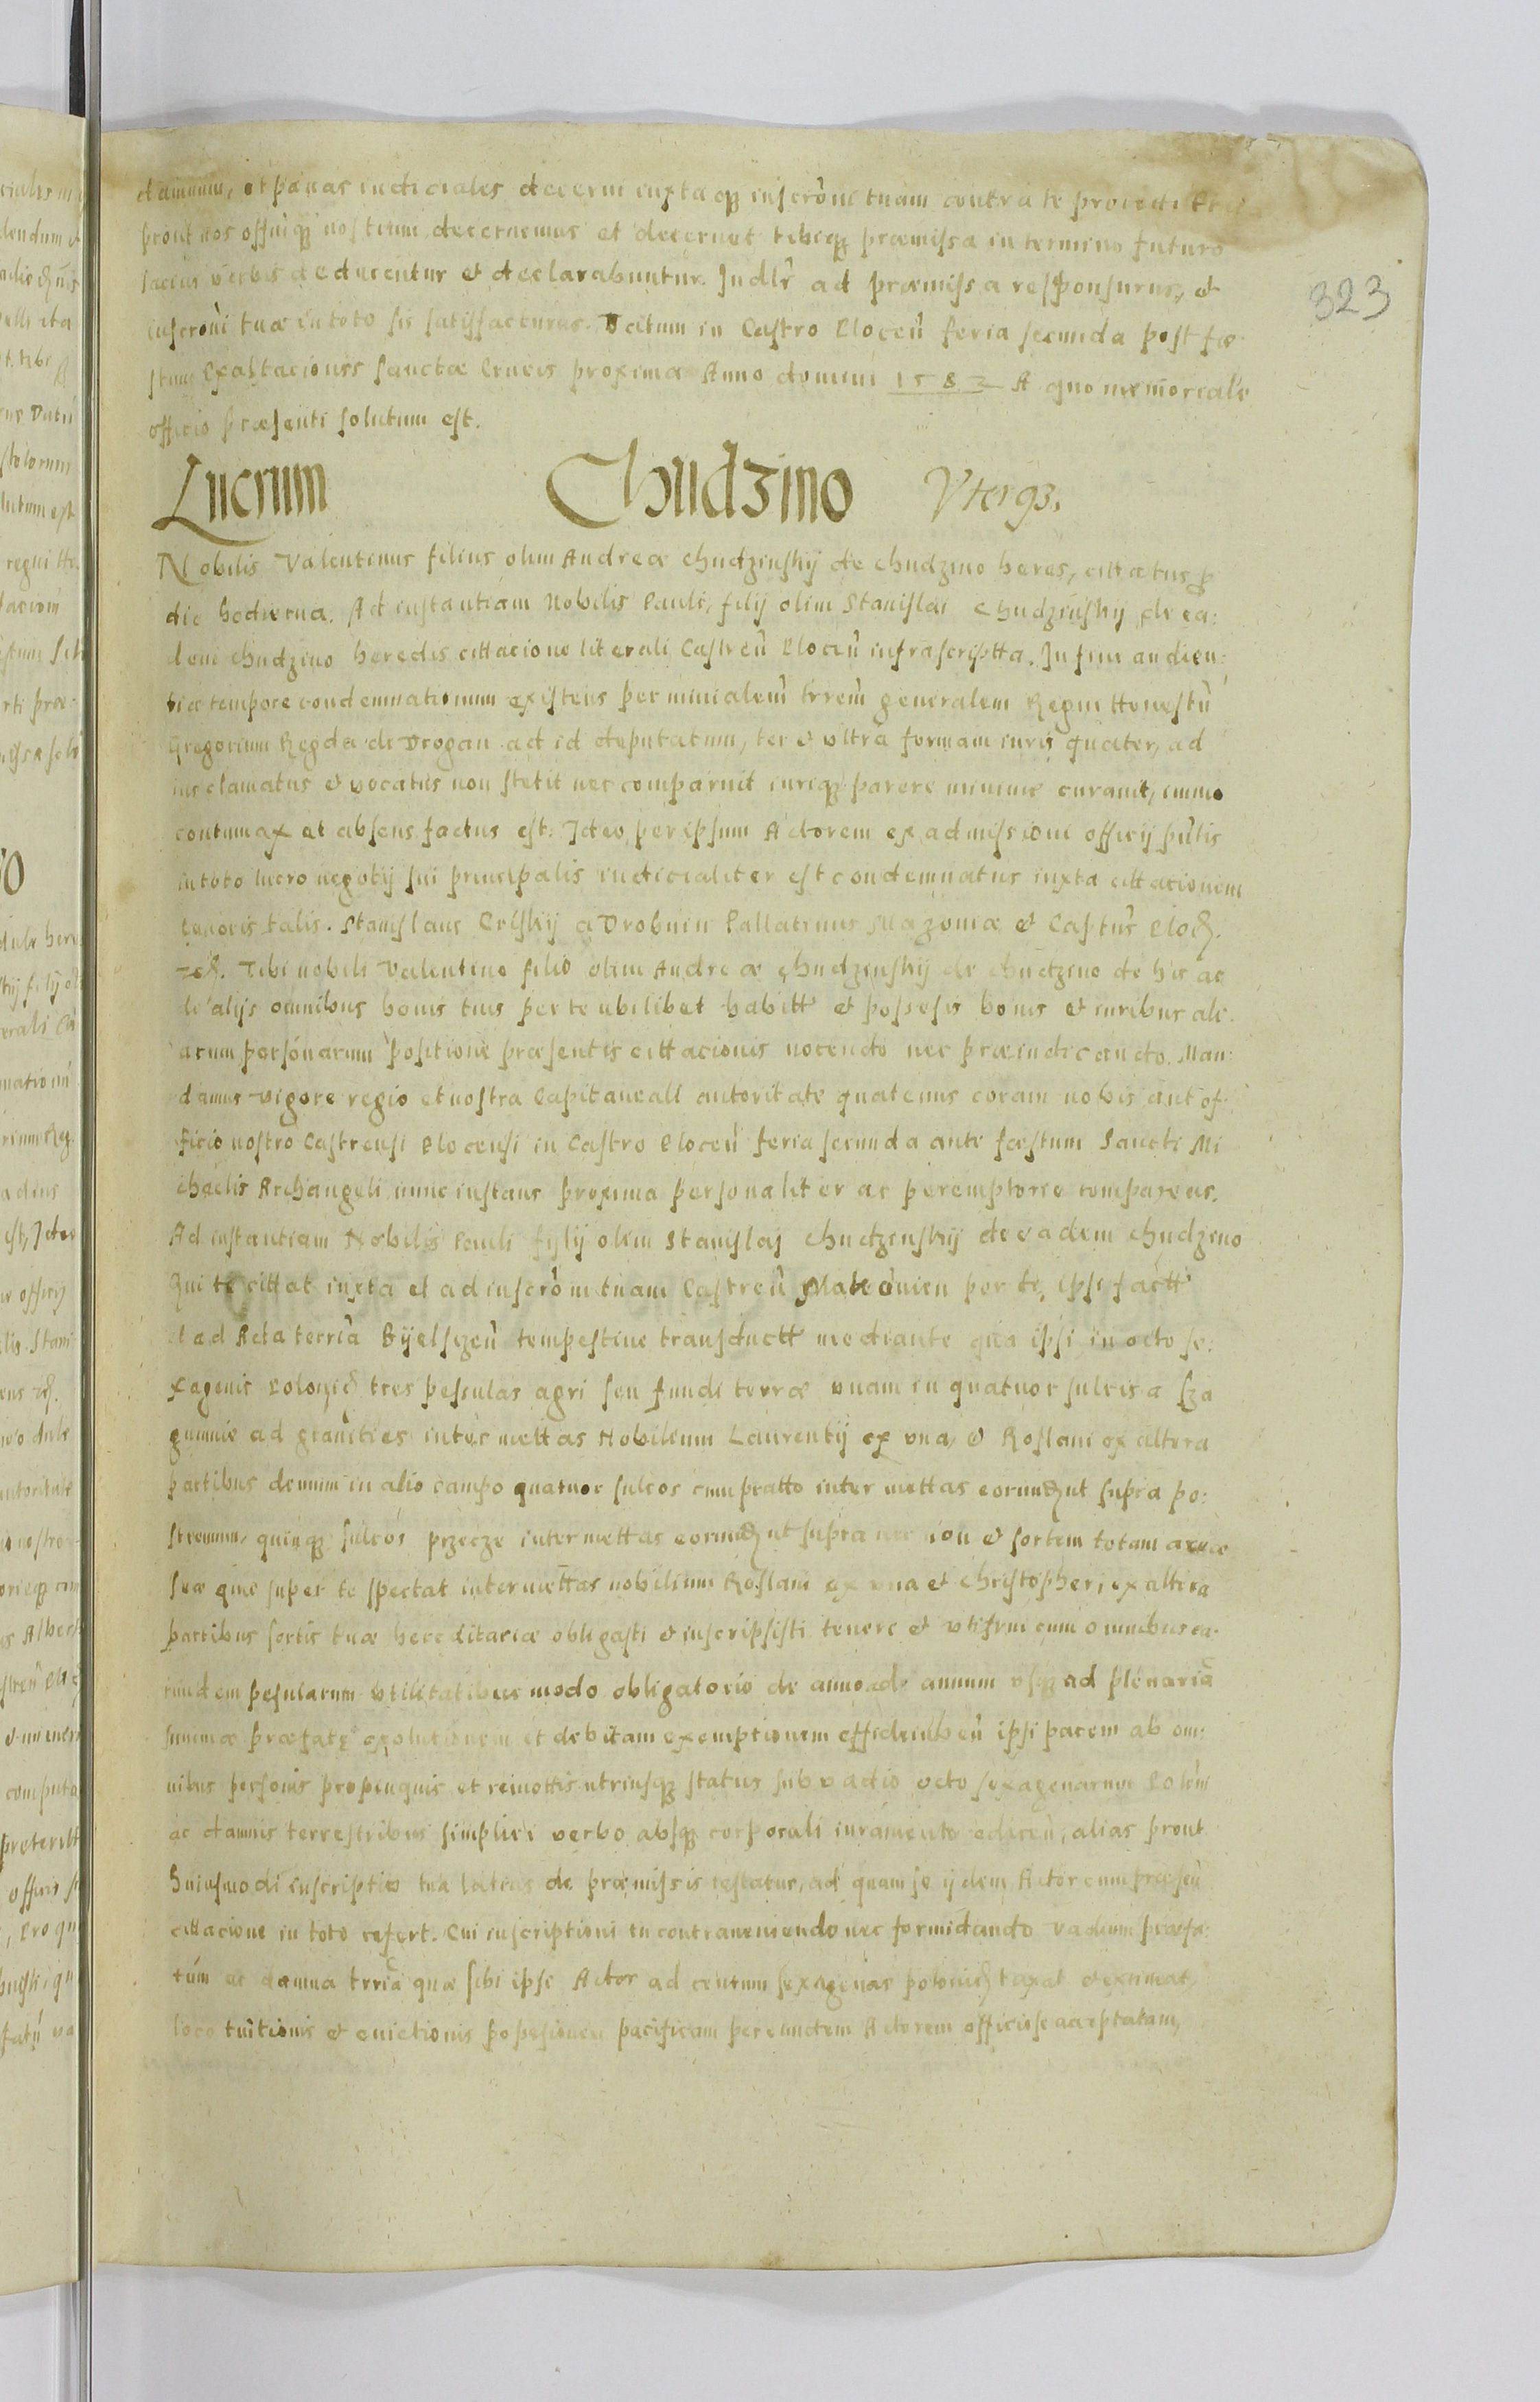 damnum, et pænas iudiciales decerni iuxta qz inscrõne tuam contra te procedi
prout nos offniqz nostrum decernemus et decernet tibiqz præmissa in termino futuro
lacius verbis deducentur et declarabuntur. Judlr ad præmissa responsurus, et
inscroni tuæ in toto sis satisfacturus. Datum in Castro Plocen̂ feria secunda post fæ
stum Exaltacionis sanctæ Crucis proxima Anno domini 1583 A quo memoriale
officio præsenti solutum est.
Lucrum Chudzino Vterqz.
Nobilis Valentinus filius olim Andreæ Chudzinskij de Chudzino heres, cittatus p
die hodierna. Ad instantiam Nobilis Pauli, filij olim Stanislai Chudzinskij de ea:
dem Chudzino heredis cittacione literali Castren̂ Plocen̂ infrascriptta. In fine audien:
tiæ tempore condemnationum existens per minialem̂ trrem̂ generalem Regni Honestu᷃
Gregorium Regda de Drogan ad id deputatum, ter et vltra formam iuris quater, ad
ius clamatus et vocatus non stetit nec comparuit iuriqz parere minime curauit, immo
contumax et absens factus est. Ideo per ipsum Actorem ex admissioni officij pntis
in toto lucro negotij sui principalis iudicialiter est condemnatus iuxta cittacionem
tenoris talis. Stanislaus Criskij a Drobnin Pallatinus Mazouiæ et Castus Ploc.
Tibi nobili Valentino filio olim Andreæ Chudzinskij de Chudzino de his ac
de alijs omnibus bonis tuis per te vbilibet habitt et possesis bonis et iuribus ali:
arum personarum positione præsentis cittacionis nocendo nec præiudicando. Man:
damus vigore regio et nostra Capitaneali autoritate quatenus coram nobis aut of:
ficio nostro Castrensi Plocensi in Castro Plocen̂ feria secunda ante fæstum Sancti Mi
chaelis Archangeli nunc instans proxima personaliter ac peremptorie compareas.
Ad instantiam Nobilis Pauli fylij olim Stanislaj Chudzinskij de eadem Chudzino
Qui te cittat iuxta et ad inscrõni tuam Castren̂ per te, ipsi factt
et ad Acta terria᷃ Byelszen̂ tempestiue transductt mediante qua ipsi in octo se:
xagenis Polonic tres pessulas agri seu fundi terræ vnam in quatuor sulcis a sza
gumnie ad granities inter mettas Nobilium Laurentij ex vna, et Roslani ex altera
partibus demum in alio campo quatuor sulcos cum pratto inter mettas eorundz ut supra po:
stremum, quinqz sulcos przecze inter mettas eorundz ut supra nec non et sortem totam areæ
suæ que super te spectat inter mettas nobilium Roslani ex vna et Christopheri ex altera
partibus sortis tuæ hereditariæ obligasti et inscripsisti tenere et vtifrui cum omnibus ea:
rundem pesularum vtilitatibus modo obligatorio de anno ad annum vsqz ad plenaria᷃
summæ præfatę exolutionem et debitam exemptionem ipsi pacem ab om:
nibus personis propinquis et remottis utriusqz status sub vadio octo sexagenarum Polon
ac damnis terrestribus simplici verbo absqz corporali iuramento edicen̂, alias prout
huiusmodi inscriptio tua latius de præmissis testatur, ad quam se ijdem Actor cum præsen̂
cittacione in toto refert. Cui inscriptioni tu contraueniendo nec formidando vadium præfa:
tum ac damna trria᷃ quæ sibi ipse Actor ad centum sexagenas polonic taxat et extimat,
loco tuitionis et euictionis posesionem pacificam per eundem Actorem officiose acceptatam,
323